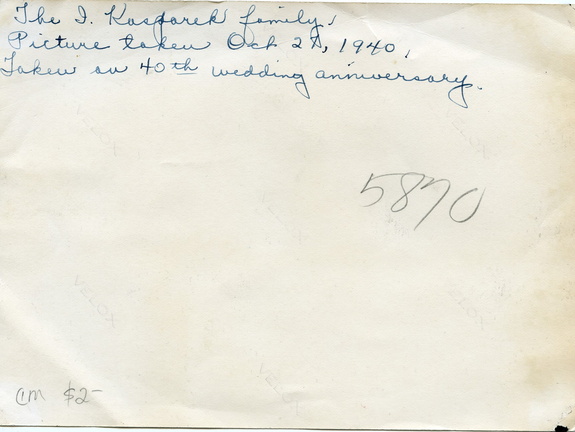 The I. Kasparek family,
Picture taken Oct 27, 1940,
Taken on 40th wedding anniversary.
5870
VELOX
VELOX
CM $2-